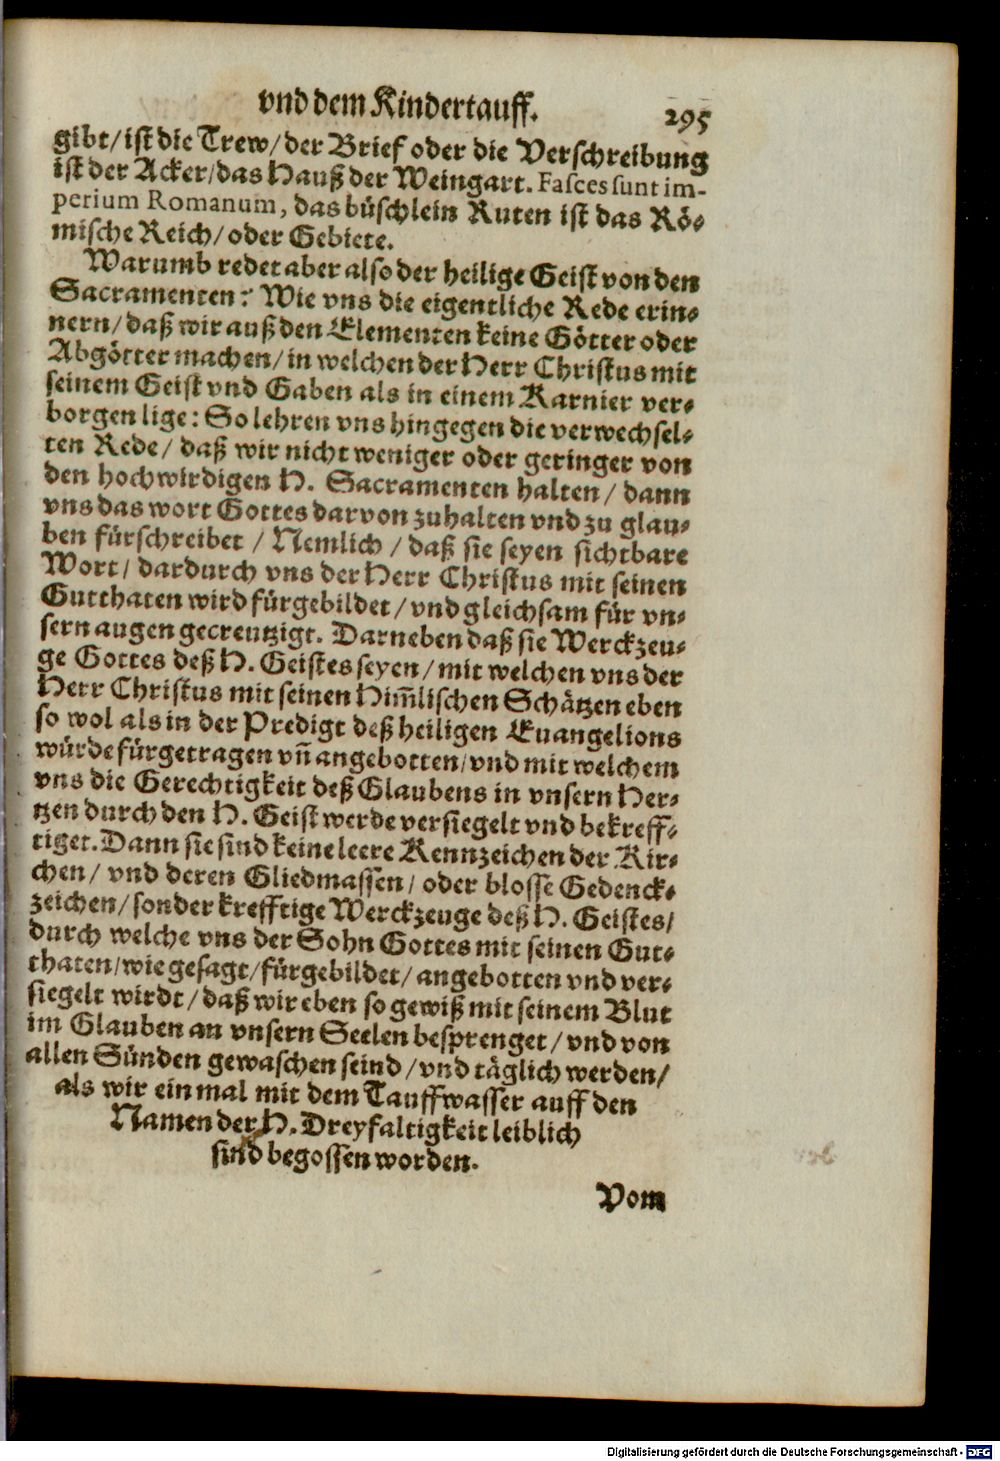 vnd dem Kindertauff. 295
gibt/ ist die Trew/ der Brief oder die Verschreibung
ist der Acker/ das Hauß der Weingart. Fasces sunt im-
perium Romanum, das büschlein Ruten ist das Rö-
mische Reich/ oder Gebiete.
Warumb redet aber also der heilige Geist von den
Sacramenten? Wie vns die eigentliche Rede erin-
nern/ daß wir auß den Elementen keine Götter oder
Abgötter machen/ in welchen der Herr Christus mit
seinem Geist vnd Gaben als in einem Karnier ver-
borgen lige: So lehren vns hingegen die verwechsel-
ten Rede/ daß wir nicht weniger oder geringer von
den hochwirdigen H. Sacramenten halten/ dann
vns das wort Gottes darvon zuhalten vnd zu glau-
ben fürschreibet/ Nemlich/ daß sie seyen sichtbare
Wort/ dardurch vns der Herr Christus mit seinen
Gutthaten wird fürgebildet/ vnd gleichsam für vn-
sern augen gecreutzigt. Darneben daß sie Werckzeu-
ge Gottes deß H. Geistes seyen/ mit welchen vns der
Herr Christus mit seinen Him̃lischen Schätzen eben
so wol als in der Predigt deß heiligen Euangelions
würde fürgetragen vñ angebotten/ vnd mit welchem
vns die Gerechtigkeit deß Glaubens in vnsern Her-
tzen durch den H. Geist werde versiegelt vnd bekreff-
tiget. Dann sie sind keine leere Kennzeichen der Kir-
chen/ vnd deren Gliedmassen/ oder blosse Gedenck-
zeichen/ sonder krefftige Werckzeuge deß H. Geistes/
durch welche vns der Sohn Gottes mit seinen Gut-
thaten/ wie gesagt/ fürgebildet/ angebotten vnd ver-
siegelt wirdt/ daß wir eben so gewiß mit seinem Blut
im Glauben an vnsern Seelen besprenget/ vnd von
allen Sünden gewaschen seind/ vnd täglich werden/
als wir ein mal mit dem Tauffwasser auff den
Namen der H. Dreyfaltigkeit leiblich
sind begossen worden.
Vom
Digitalisierung gefördert durch die Deutsche Forschungsgemeinschaft - DFG